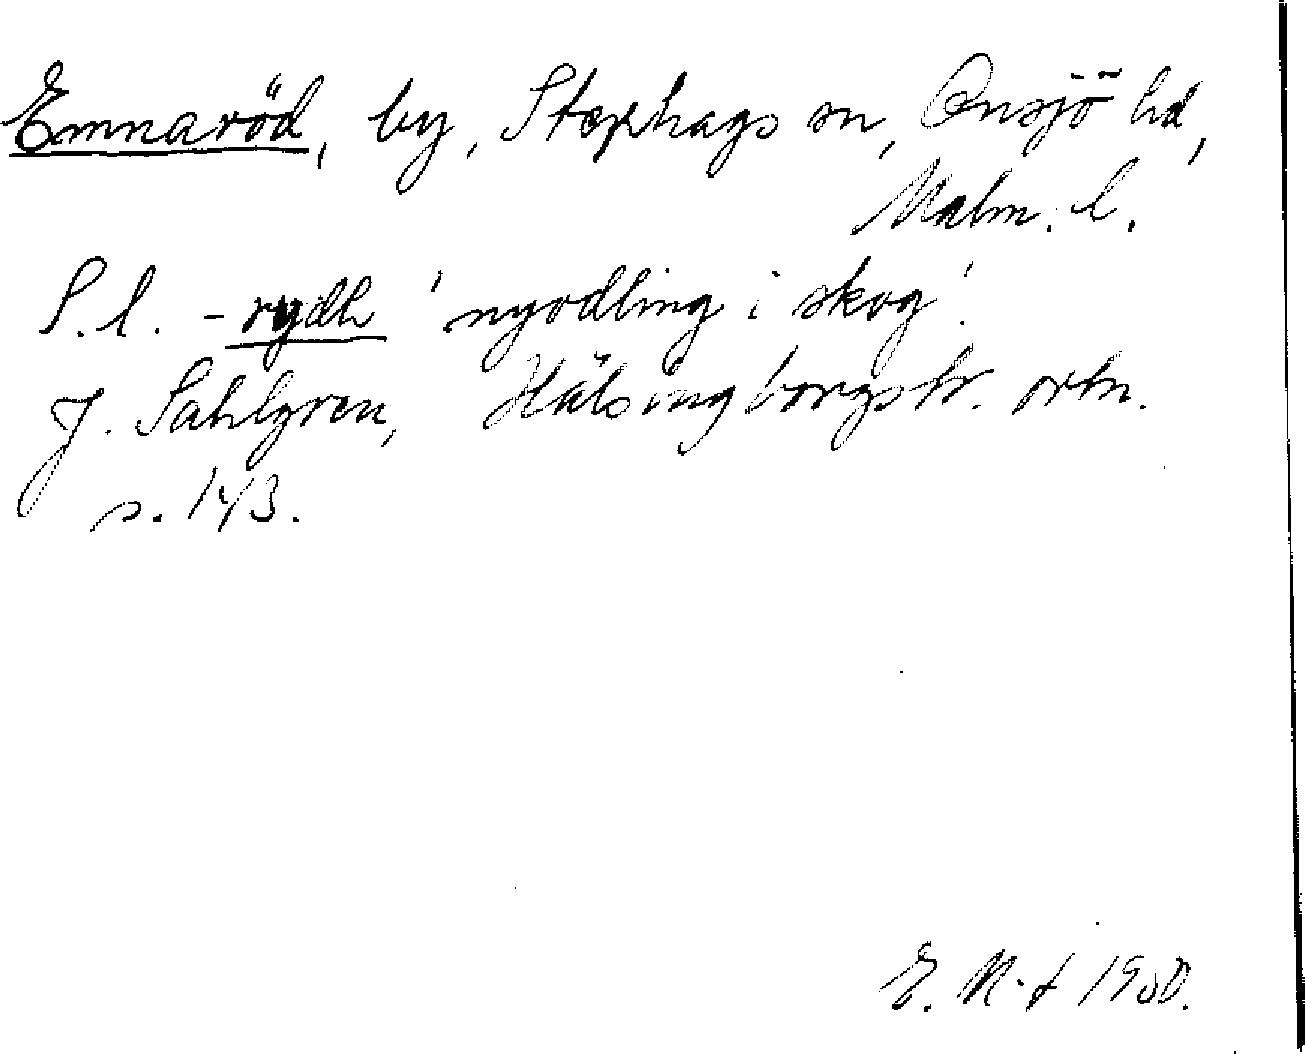 Emnaröd, by, Stephags sn, Onsjö hd,
Malm. l.
S.l. -rydh 'nyodling i skog'.
J. Sahlgren, Hälsingborgstr. ortn.
s. 143.
E. N-t 1950.